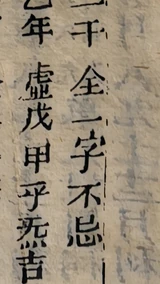 一干全一字不忌
乙年虛戊甲乎炁吉